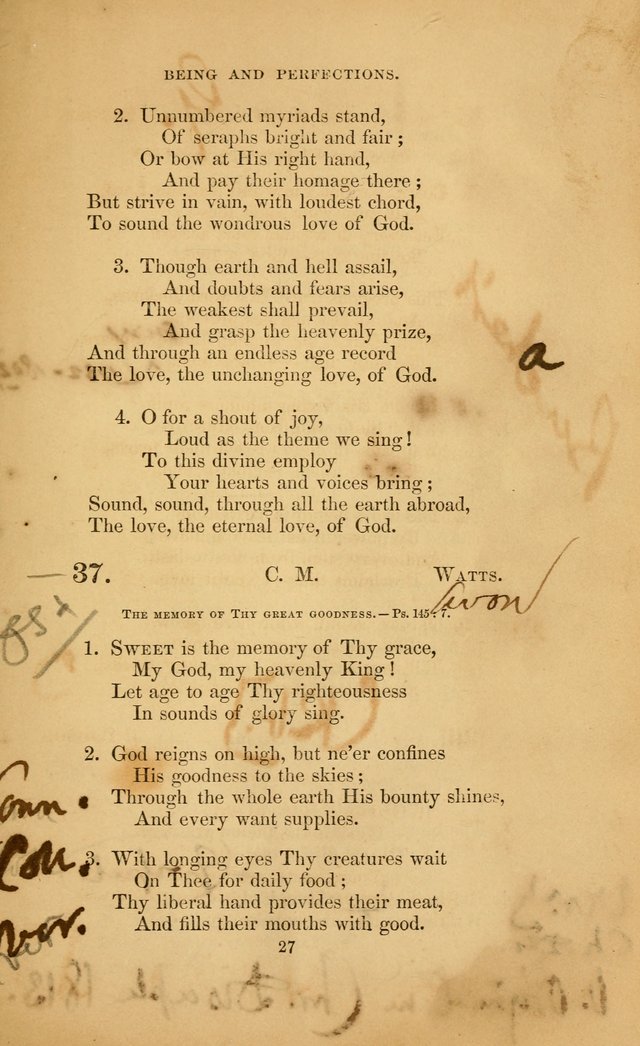 BEING AND PERFECTIONS.
2. Unnumbered myriads stand,
Of seraphs bright and fair;
Or bow at His right hand,
And pay their homage there;
But strive in vain, with loudest chord,
To sound the wondrous love of God.
3. Though earth and hell assail,
And doubts and fears arise,
The weakest shall prevail,
And grasp the heavenly prize,
And through an endless age record
The love, the unchanging love, of God.
a
4. O for a shout of joy,
Loud as the theme we sing!
To this divine employ
Your hearts and voices bring;
Sound, sound, through all the earth abroad,
The love, the eternal love, of God.
37. C. M. WATTS.
THE MEMORY OF THY GREAT GOODNESS.—Ps. 145: 7.
Avon
1. SWEET is the memory of Thy grace,
My God, my heavenly King!
Let age to age Thy righteousness
In sounds of glory sing.
2. God reigns on high, but ne'er confines
His goodness to the skies;
Through the whole earth His bounty shines,
And every want supplies.
3. With longing eyes Thy creatures wait
On Thee for daily food;
Thy liberal hand provides their meat,
And fills their mouths with good.
27